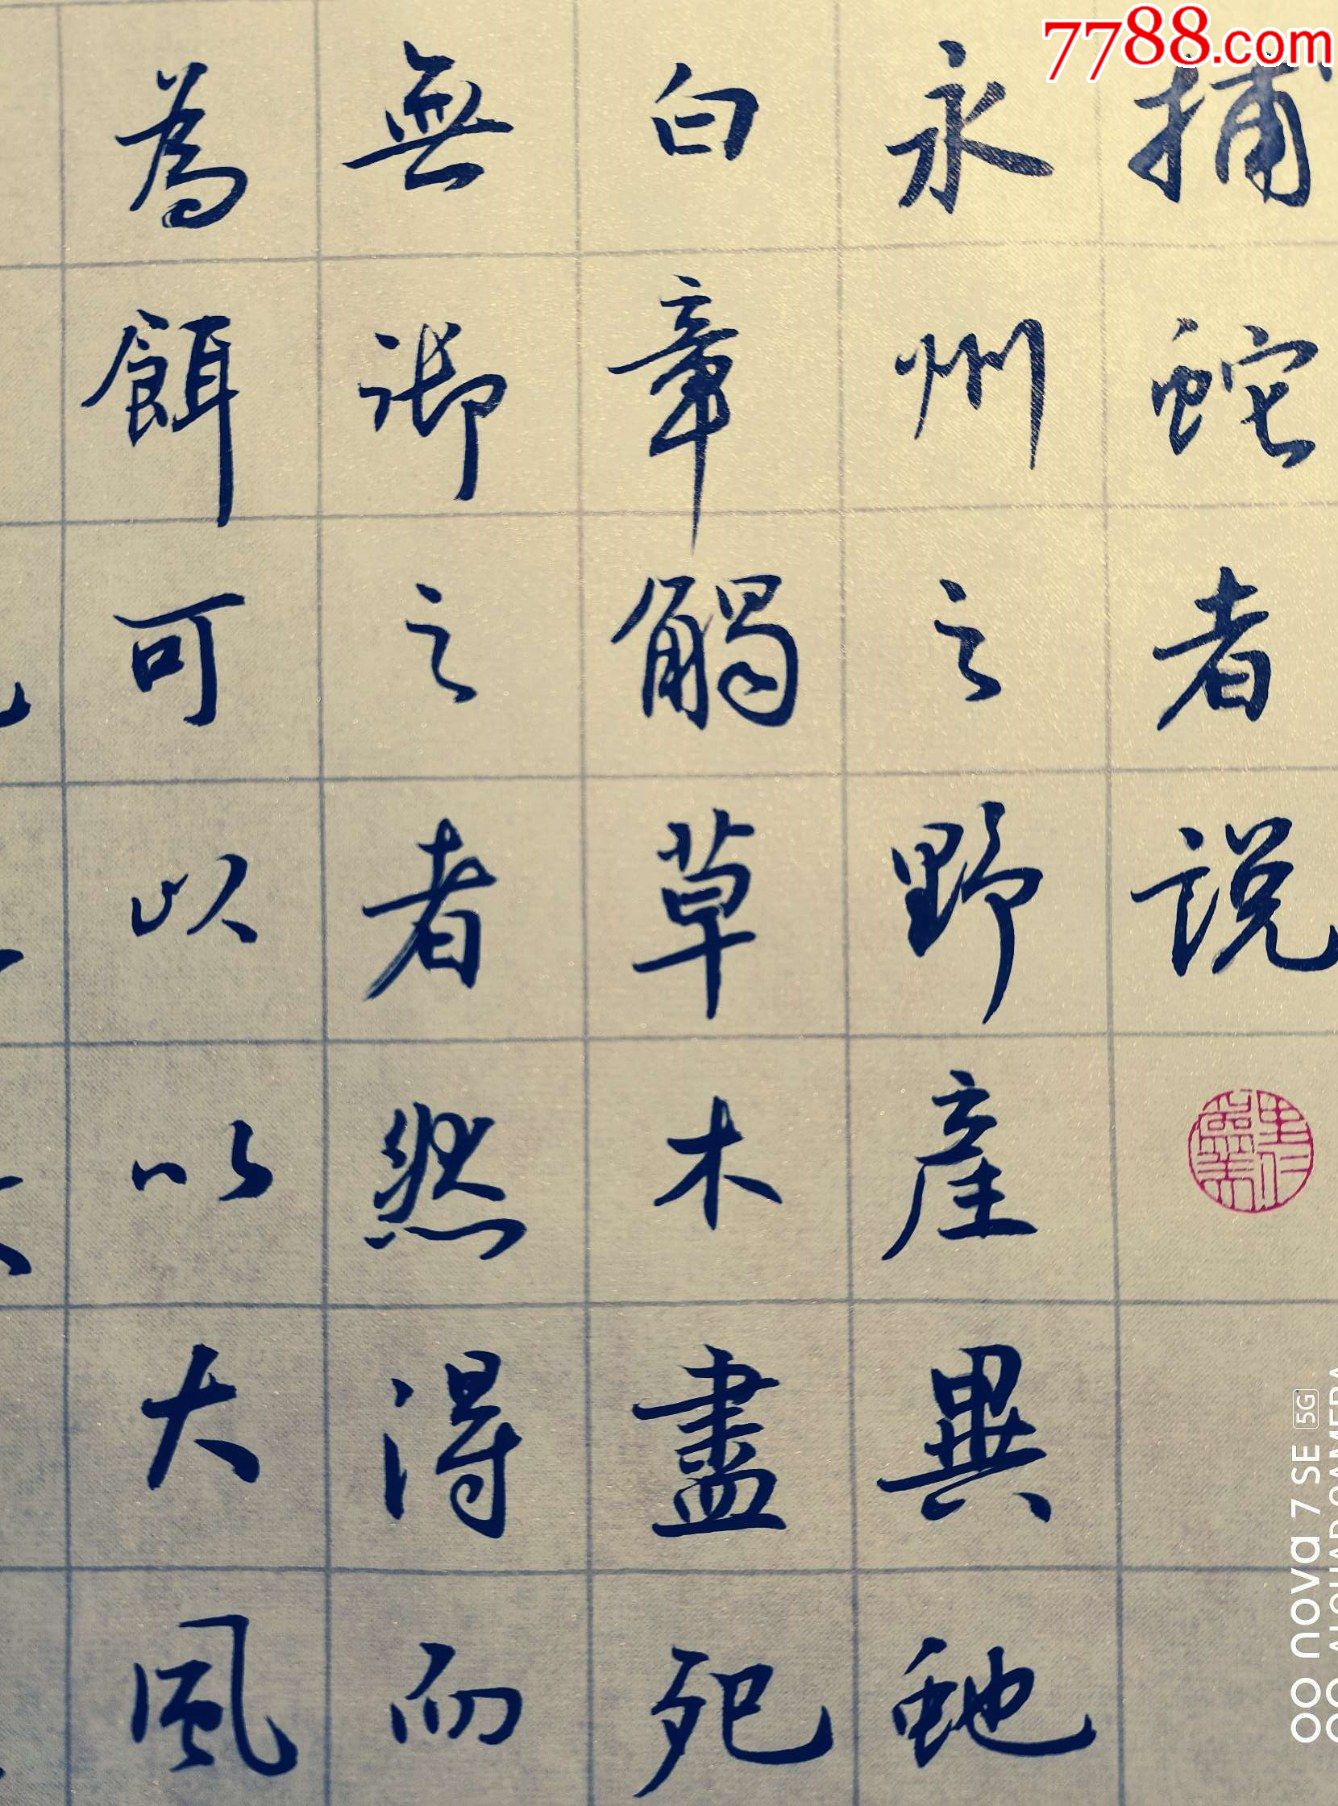 7788.com
捕蛇者說
永州之野產異虵
白章觸草木盡死
無御之者然得而
為餌可以以大風
nova 7 SE 5G
AI QUAD CAMERA